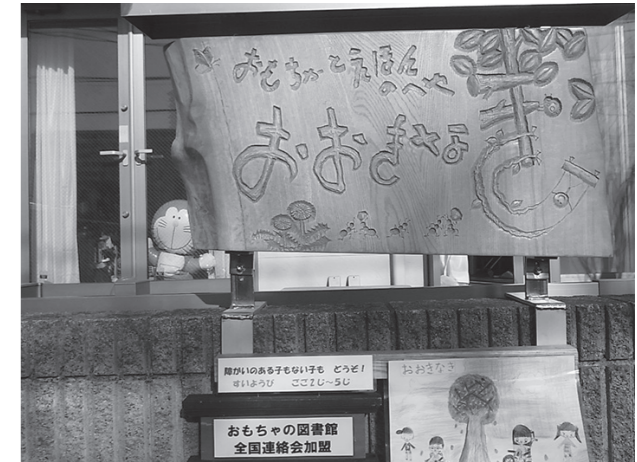 おもちゃとえほん
のへや
おおきな
き
障がいのある子もない子も どうぞ!
すいようび ごご2じ〜5じ
おもちゃの図書館
全国連絡会加盟
おおきなき